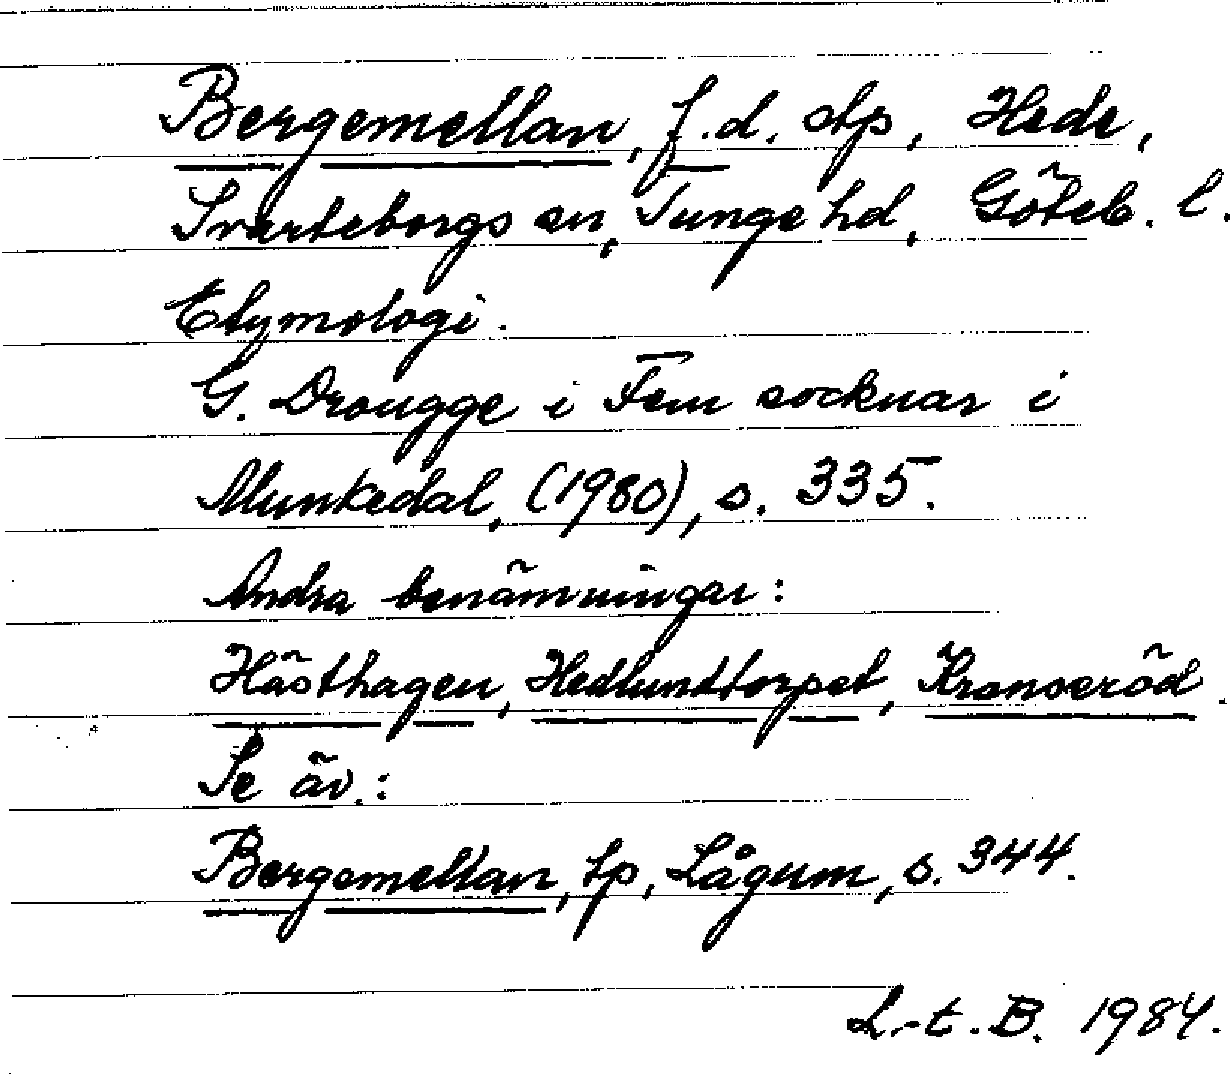 Bergemellan, f.d. stp, Hede,
Svarteborgs sn, Tunge hd, Göteb. l.
Etymologi.
G. Drougge i Fem socknar i
Munkedal, (1980), s. 335.
Andra benämningar:
Hästhagen, Hedlundtorpet, Kranseröd.
Se äv.:
Bergemellan, tp, Lågum, s. 344.
L.-t. B. 1984.